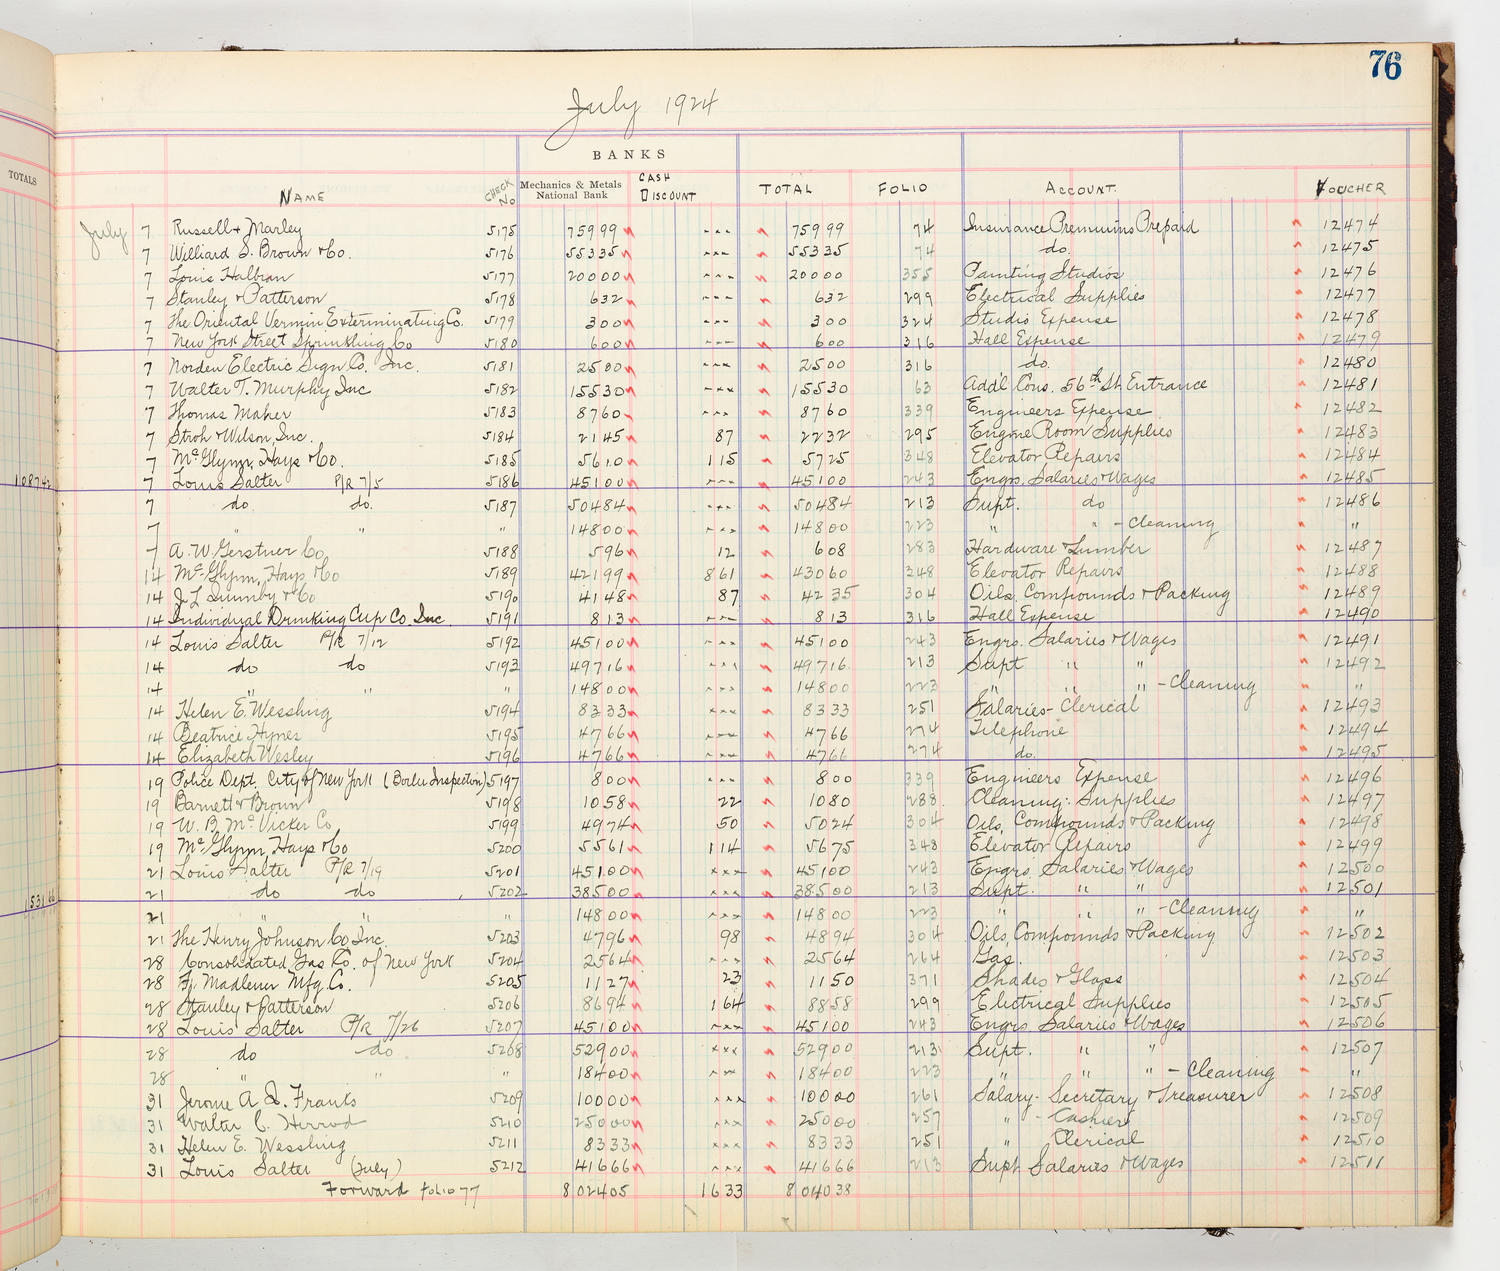 TOTALS
76
July 1924
BANKS
NAME CHECK No Mechanics & Metals National Bank CASH DISCOUNT TOTAL FOLIO ACCOUNT. VOUCHER
July 7 Russell & Marley 5175 759 99 --- 759 99 74 Insurance Premiums Prepaid 12474
7 Williard S. Brown & Co. 5176 553 35 --- 553 35 74 do. 12475
7 Louis Halbran 5177 200 00 --- 200 00 355 Painting Studios 12476
7 Stanley & Patterson 5178 6 32 --- 6 32 299 Electrical Supplies 12477
7 The Oriental Vermin Exterminating Co. 5179 3 00 --- 3 00 324 Studio Expense 12478
7 New York Street Sprinkling Co 5180 6 00 --- 6 00 316 Hall Expense 12479
7 Norden Electric Sign Co. Inc. 5181 25 00 --- 25 00 316 do. 12480
7 Walter T. Murphy Inc 5182 155 30 --- 155 30 63 Add'l Cons. 56th St. Entrance 12481
7 Thomas Maher 5183 87 60 --- 87 60 339 Engineers Expense 12482
7 Stroh & Wilson, Inc. 5184 21 45 87 22 32 295 Engine Room Supplies 12483
7 McGlynn, Hays & Co. 5185 56 10 1 15 57 25 348 Elevator Repairs 12484
1087 42 7 Louis Salter P/R 7/5 5186 451 00 --- 451 00 243 Engrs. Salaries & Wages 12485
7 do do. 5187 504 84 --- 504 84 213 Supt. do 12486
7 " " " 148 00 --- 148 00 223 " " - Cleaning "
7 A. W. Gerstner Co. 5188 5 96 12 6 08 283 Hardware & Lumber 12487
14 McGlynn, Hays & Co 5189 421 99 8 61 430 60 348 Elevator Repairs 12488
14 J L Quimby & Co 5190 41 48 87 42 35 304 Oils, Compounds & Packing 12489
14 Individual Drinking Cup Co. Inc. 5191 8 13 --- 8 13 316 Hall Expense 12490
14 Louis Salter P/R 7/12 5192 451 00 --- 451 00 243 Engrs. Salaries & Wages 12491
14 do do 5193 497 16 --- 497 16 213 Supt " " 12492
14 " " " 148 00 --- 148 00 223 " " " - Cleaning "
14 Helen E. Wessling 5194 83 33 --- 83 33 251 Salaries - Clerical 12493
14 Beatrice Hynes 5195 47 66 --- 47 66 274 Telephone 12494
14 Elizabeth Wesley 5196 47 66 --- 47 66 274 do. 12495
19 Police Dept. City of New York (Boiler Inspection) 5197 8 00 --- 8 00 339 Engineers Expense 12496
19 Barnett & Brown 5198 10 58 22 10 80 288 Cleaning Supplies 12497
19 W. B. McVicker Co 5199 49 74 50 50 24 304 Oils, Compounds & Packing 12498
19 McGlynn, Hays & Co 5200 55 61 1 14 56 75 348 Elevator Repairs 12499
21 Louis Salter P/R 7/19 5201 451 00 --- 451 00 243 Engrs. Salaries & Wages 12500
1531 66 21 do do 5202 385 00 --- 385 00 213 Supt. " " 12501
21 " " " 148 00 --- 148 00 223 " " " - Cleaning "
21 The Henry Johnson Co, Inc. 5203 47 96 98 48 94 304 Oils, Compounds & Packing 12502
28 Consolidated Gas Co. of New York 5204 25 64 --- 25 64 264 Gas. 12503
28 Fr. Madlener Mfg. Co. 5205 11 27 23 11 50 371 Shades & Glass 12504
28 Stanley & Patterson 5206 86 94 1 64 88 58 299 Electrical Supplies 12505
28 Louis Salter P/R 7/26 5207 451 00 --- 451 00 243 Engrs. Salaries & Wages 12506
28 do do 5208 529 00 --- 529 00 213 Supt. " " 12507
28 " " " 184 00 --- 184 00 223 " " " - Cleaning "
31 Jerome A. Q. Franks 5209 100 00 --- 100 00 261 Salary - Secretary & Treasurer 12508
31 Walter C. Herrod 5210 250 00 --- 250 00 257 " - Cashier 12509
31 Helen E. Wessling 5211 83 33 --- 83 33 251 " Clerical 12510
31 Louis Salter (July) 5212 416 66 --- 416 66 213 Supt. Salaries & Wages 12511
Forward Folio 77 8 024 05 16 33 8 040 38